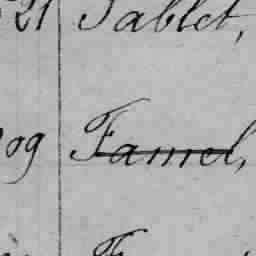 21 Tablet,
09 Famel,